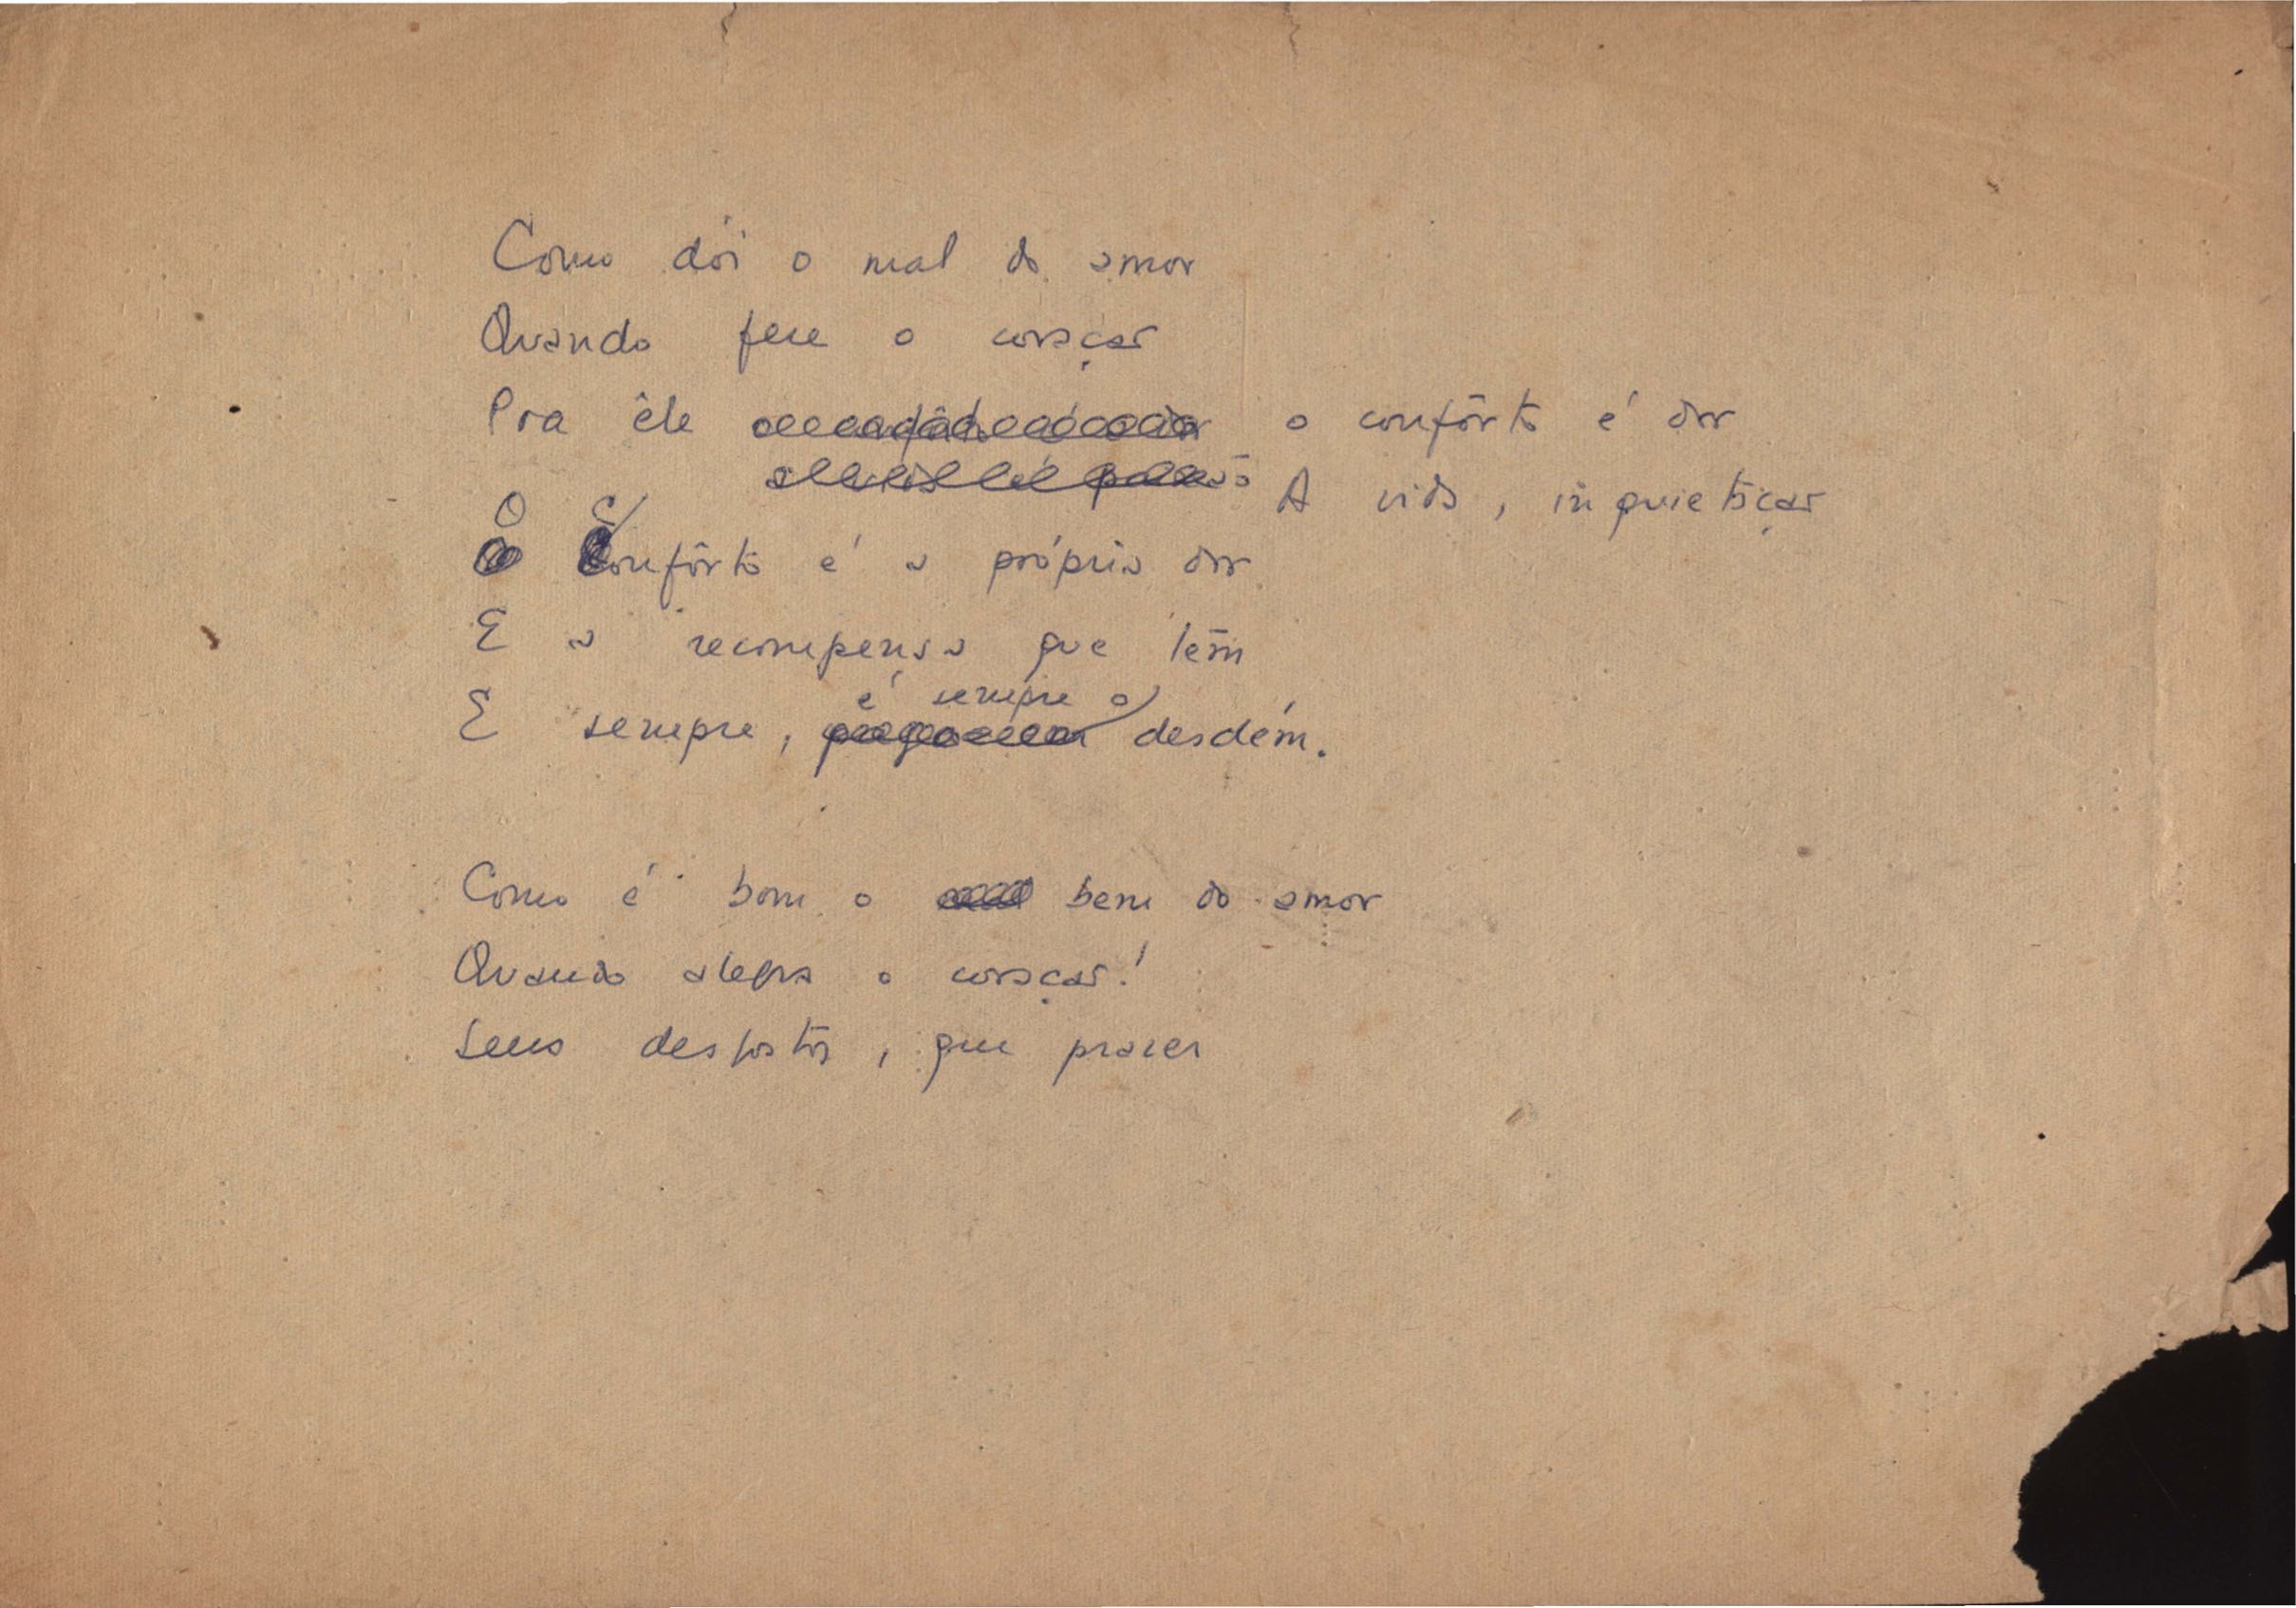 Como dói o mal do amor
Quando fere o coração
Pra êle o confôrto é dor
A vida, inquietação
O Confôrto é a própria dor
E a recompensa que tem
é sempre o
E sempre, desdém.
Como é bom o bem do amor
Quando alegra o coração!
Seus desgostos, que prazer